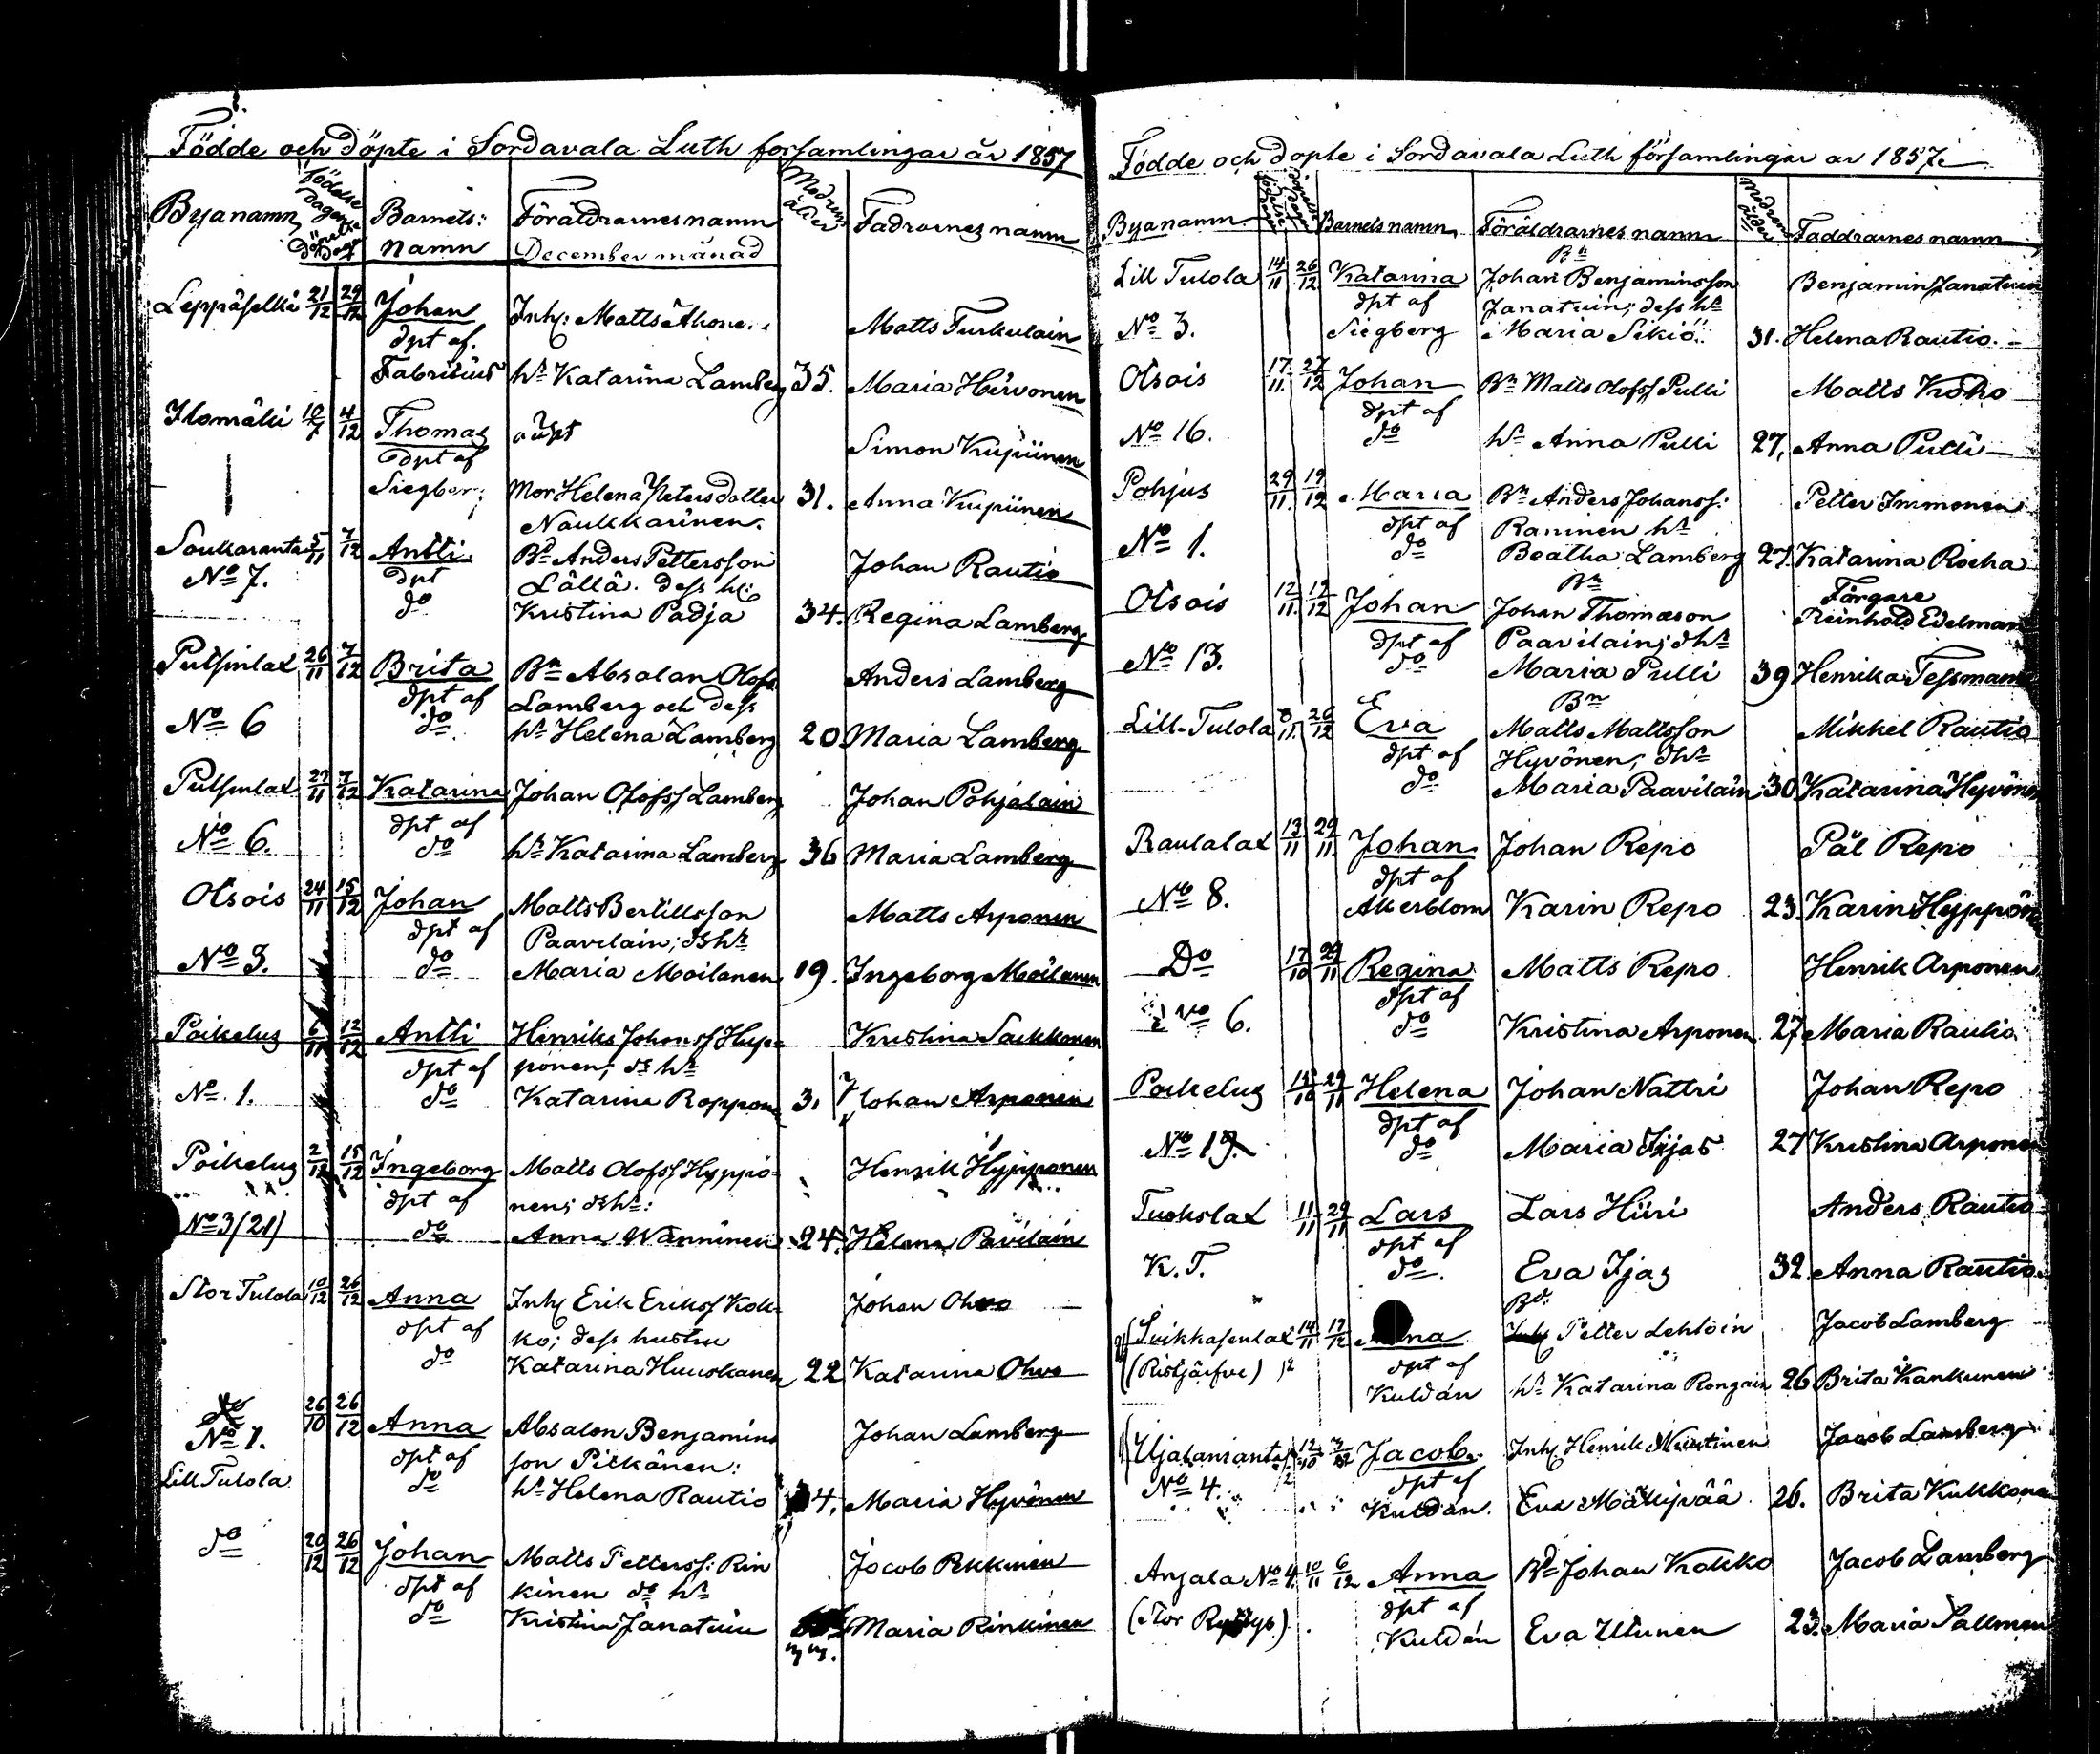 Födde och döpte i Sordavala Luth forsamlingar år 1857
Byanamn Födelse dagen Döpelse dag Barnets: namn Föräldrarnes namn Modrens ålder Fadrarnes namn
December månad
Leppäselkä 21/12 29/12 Johan Inh: Matts Ahone Matts Turkulain
dpt af.
Fabritius hᵘ Katarina Lamberg 35. Maria Hirvonen
Ilomäki 10/7 4/12 Thomas Simon Kupiinen
dpt af
Siegberg Mor Helena Petersdotter 31. Anna Kupiinen
Naukkarinen.
Soukaranta 5/11 7/12 Antti Bd Anders Pettersson Johan Rautio
No 7. dpt Lällä. dess h:
do Kristina Padja 34. Regina Lamberg
Putsinlax 26/11 7/12 Brita Bn Absalan Olofs Anders Lamberg
dpt af Lamberg och dess
No 6 do hu Helena Lamberg 20 Maria Lamberg
Putsinlax 27/11 7/12 Katarina Johan Olofss Lamberg Johan Pohjalain
dpt af
No 6. do hu Katarina Lamberg 36 Maria Lamberg
Otsois 24/11 15/12 Johan Matts Bertillsson Matts Arponen
dpt af Paavilain; ds hu
No 3. do Maria Moilanen 19. Ingeborg Moilanen
Poikelus 6/11 12/12 Antti Henriks Johanss Hyp= Kristina Saikkonen
dpt af ponen; ds hu
No. 1. do Katarina Roppone 31 Johan Arponen
Poikelus 2/12 15/12 Ingeborg Matts Olofss Hyppö= Henrik Hyypponen
dpt af nen; ds hu:
No 3/21) do Anna Wänninen 24. Helena Pavilain
Stor Tulola 10/12 26/12 Anna Inh Erik Erikss Kok= Johan Ohvo
dpt af ko; dess hustru
do Katarina Huuskanen 22 Katarina Ohvo
No 1. 26/10 26/12 Anna Absalon Benjamins Johan Lamberg
dpt af son Pitkänen:
Lill Tulola do hu Helena Rautio 34. Maria Hyvönen
do 20/12 26/12 Johan Matts Petterss: Rin Jacob Pekkinen
dpt af kinen ds hu
do Kristina Janatuin Maria Rinkinen
Födde och döpte i Sordavala Luth församlingar år 1857.
Byanamn Födelse dagen Döpelse dagen Barnets namn Föräldrarnes namn Modrens ålder Faddrarnes namn
Bn
Lill Tulola 14/11 26/12 Katarina Johan Benjaminsson Benjamin Janatuin
dpt af Janatuin; dess hu
No 3. Siegberg Maria Sikiö 31. Helena Rautio.
Otsois 17/11 27/12 Johan Bn Matts Olofss Pulli Matts Kokko
dpt af
No 16. do hu Anna Pulli 27, Anna Pulli
Pohjus 29/11 19/12 Maria Bn Anders Johanss: Petter Immonen
dpt af Raninen hu
No 1. do Beatha Lamberg 27. Katarina Rocha
Bn Färgare
Otsois 12/11 12/12 Johan Johan Thomasson Reinhold Edelman
dpt af Paavilain; d hu
No 13. do Maria Pulli 39 Henrika Tessman
Bn
Lill-Tulola 8/11 26/12 Eva Matts Mattsson Mikkel Rautio
dpt af Hyvönen; d hu
do Maria Paavilain 30 Katarina Hyvönen
Rautalax 13/11 29/11 Johan Johan Repo Pål Repo
dpt af
No 8. Akerblom Karin Repo 23. Karin Hyppöne
Do 17/10 29/11 Regina Matts Repo Henrik Arponen
dpt af
No 6. do Kristina Arponen 27 Maria Rautio
Poikelus 15/10 29/11 Helena Johan Nattri Johan Repo
dpt af
No 19. do Maria Ijas 27 Kristina Arponen
Tuokslax 11/11 29/11 Lars Lars Hiiri Anders Rautio
dpt af
K. T. do Eva Ijas 32. Anna Rautio.
Bd.
Suikkasenlax 14/11 17/12 na Petter Lehtoin Jacob Lamberg
(Ristjärfve) dpt af
Kuldan hu Katarina Rongain 26 Brita Kankunen
12/10 Jacob Inh Henrik Jacob Lamberg
No 4. dpt af
Kuldan. Eva Mäkipää 26. Brita Kukkonen
Anjala No 4. 10/11 6/12 Anna Bd Johan Kokko Jacob Lamberg
dpt af
(Stor Kuldan Eva Utunen 23. Maria Sallinen